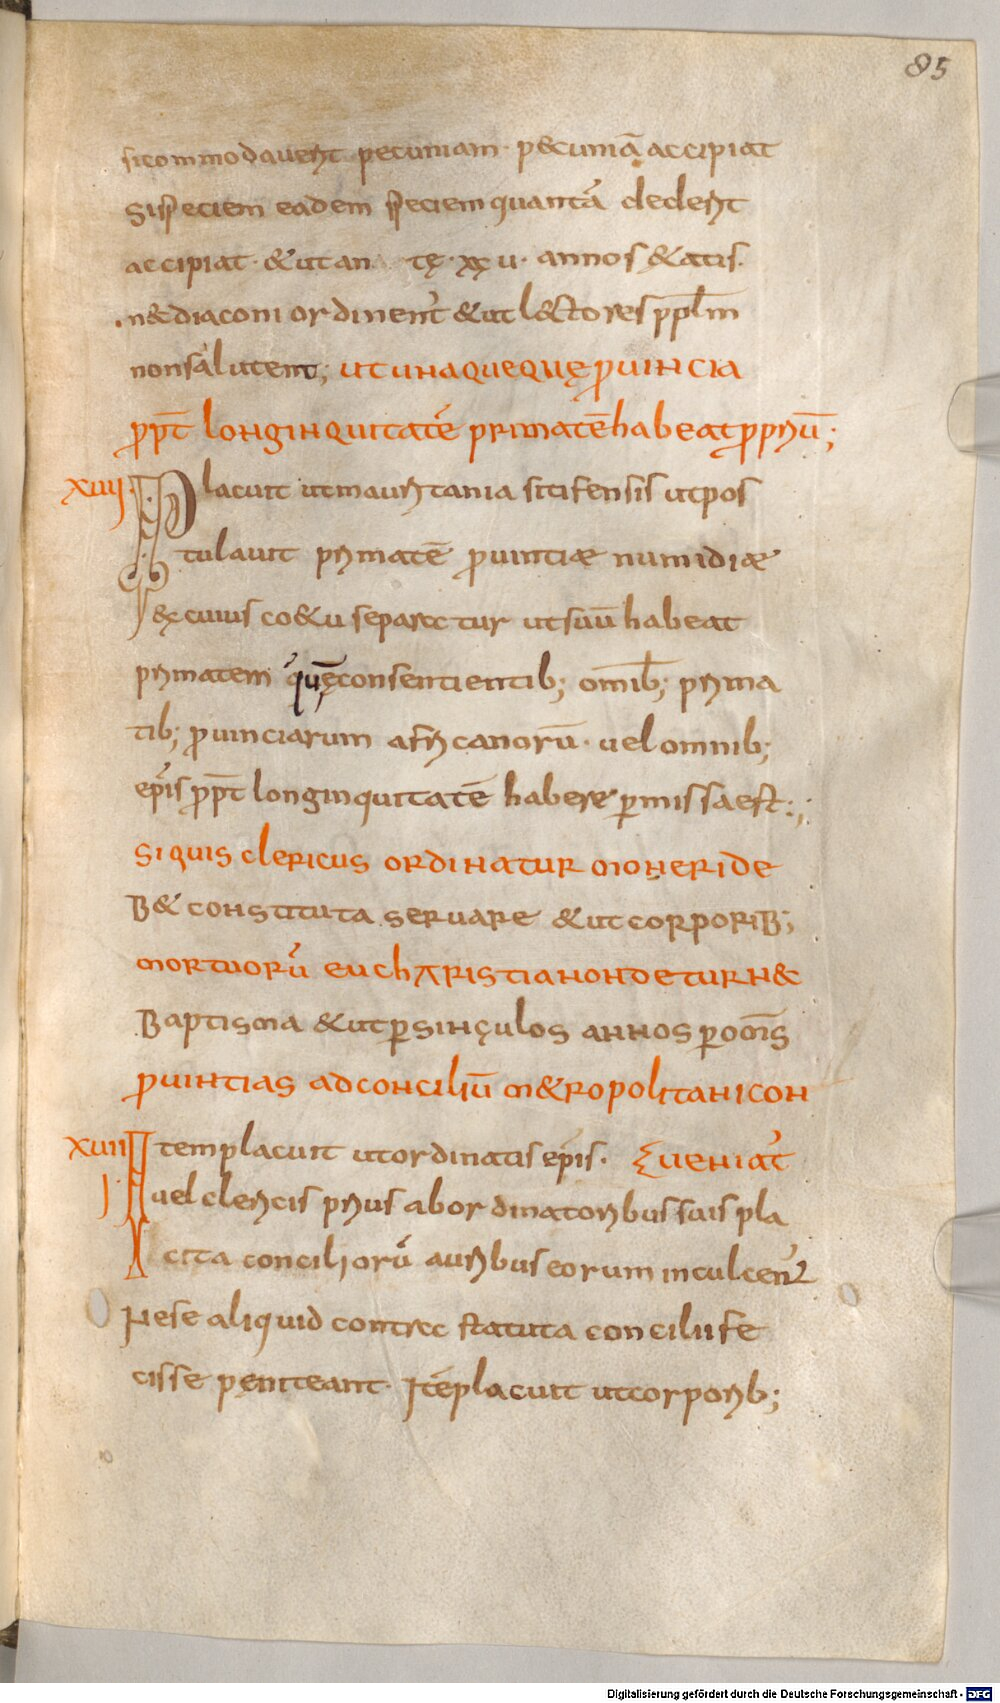 85
sicommodauerit pecuniam· p&cuniā accipiat
Si speciem eadem speciem quantā dederit
accipiat· &ut an tę· xxv· annos &atis·
n& diaconi ordinent̄ &ut l&ctores ppl̄m
non salutent; ut unaqueque ꝓuincia
ꝓpt̄ longinquitatē primatē habeat ꝓpriū;
XVII Placuit ut mauritania sitifensis ut pos
tulauit primatē ꝓuintiæ numidiæ
&ę cuius co&u separatur ut suū habeat
primatem quę consentientib; omib; prima
tib; ꝓuinciarum africanorū· uel omnib;
ep̄is ꝓpt̄ longinquitatē habere ꝑmissa est:;
Si quis clericus ordinatur moneri de
B& constituta seruare &ut corporib;
mortuorū eucharistia non detur n&
Baptisma &ut ꝑ singulos annos ꝑ om̄s
ꝓuintias ad conciliū m&ropolitani con
XVIII Item placuit ut ordinatis ep̄is· ueniat̄
uel clericis prius ab ordinatoribus suis pla
cita conciliorū auribus eorum inculcent̄
Ne se aliquid contra statuta concilii fe
cisse pęniteant· Itē placuit ut corporib;
Digitalisierung gefördert durch die Deutsche Forschungsgemeinschaft - DFG